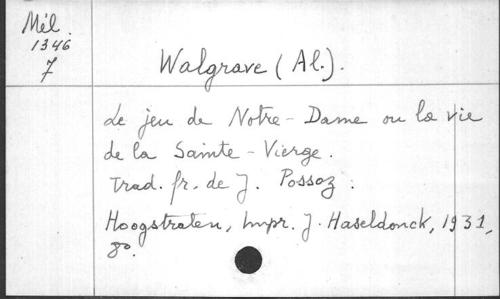 Mél.
1346
7
Walgrave (Al.).
Le jeu de Notre-Dame ou la vie
de la Sainte-Vierge.
Trad. fr. de J. Possoz.
Hoogstraten, Impr. J. Haseldonck, 1931,
8º.